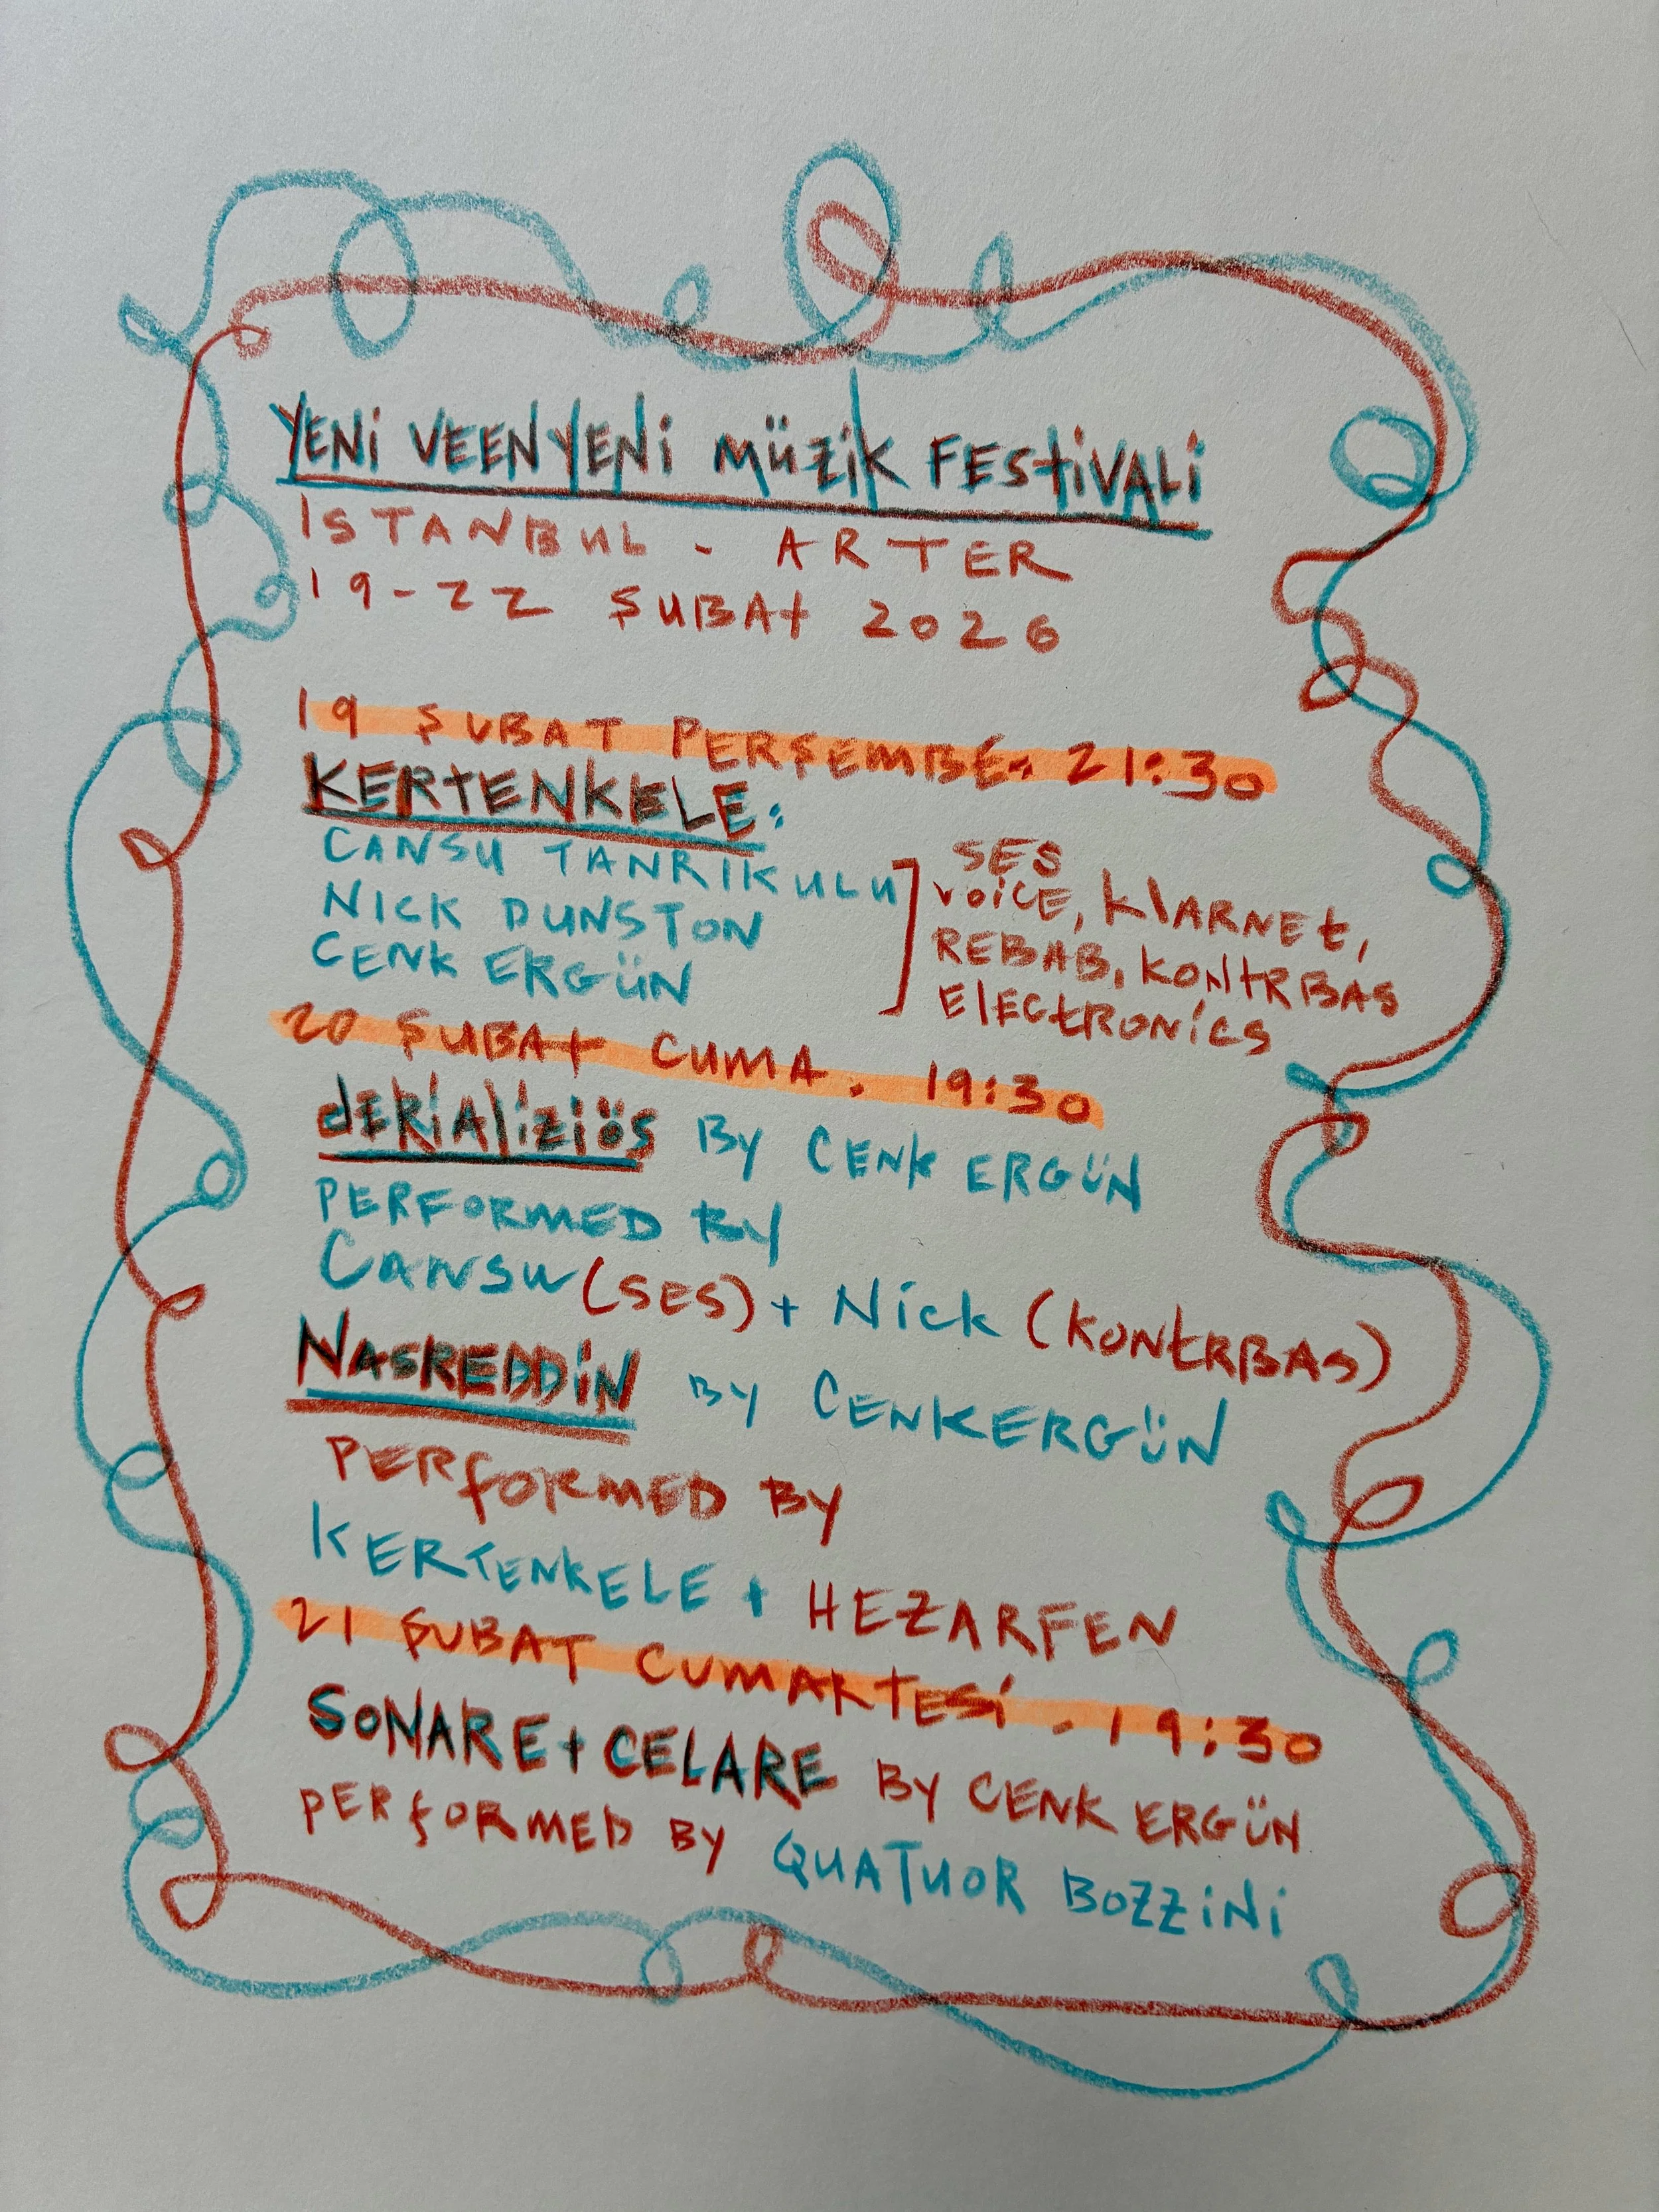 YENİ VEENYENİ MÜZİK FESTİVALİ
ISTANBUL - ARTER
19-22 ŞUBAT 2026
19 ŞUBAT PERŞEMBE. 21:30
KERTENKELE:
CANSU TANRIKULU
NICK DUNSTON
CENK ERGÜN
SES
VOiCE, KlARNET,
REBAB, KONTRBAS
ElECTRONiCS
20 ŞUBAT CUMA. 19:30
dERİAlİZİÖS BY CENK ERGÜN
PERFORMED BY
CANSU (SES) + Nick (KONTRBAS)
NASREDDİN BY CENKERGÜN
PERfORMED BY
KERTENKELE + HEZARFEN
21 ŞUBAT CUMARTESİ. 19:30
SONARE + CELARE BY CENK ERGÜN
PERfORMED BY QUATUOR BOZZiNi